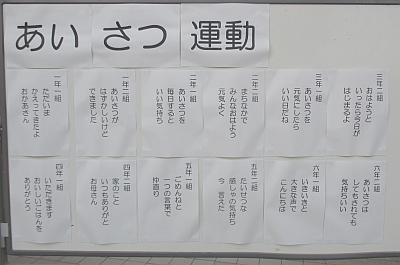 あいさつ 運動
一年一組
ただいま
かえってきたよ
おかあさん
一年二組
あいさつが
はずかしいけど
できました
二年一組
あいさつを
毎日すると
いい気持ち
二年二組
まちなかで
みんなおはよう
元気よく
三年一組
あいさつを
元気にしたら
いい日だね
三年二組
おはようと
いったら今日が
はじまるよ
四年一組
いただきます
おいしいごはんを
ありがとう
四年二組
家のこと
いつもありがと
お母さん
五年一組
ごめんねと
一つの言葉で
仲直り
五年二組
たいせつな
感しゃの気持ち
今言えた
六年一組
いきいきと
大きな声で
こんにちは
六年二組
あいさつは
してもされても
気持ちいい